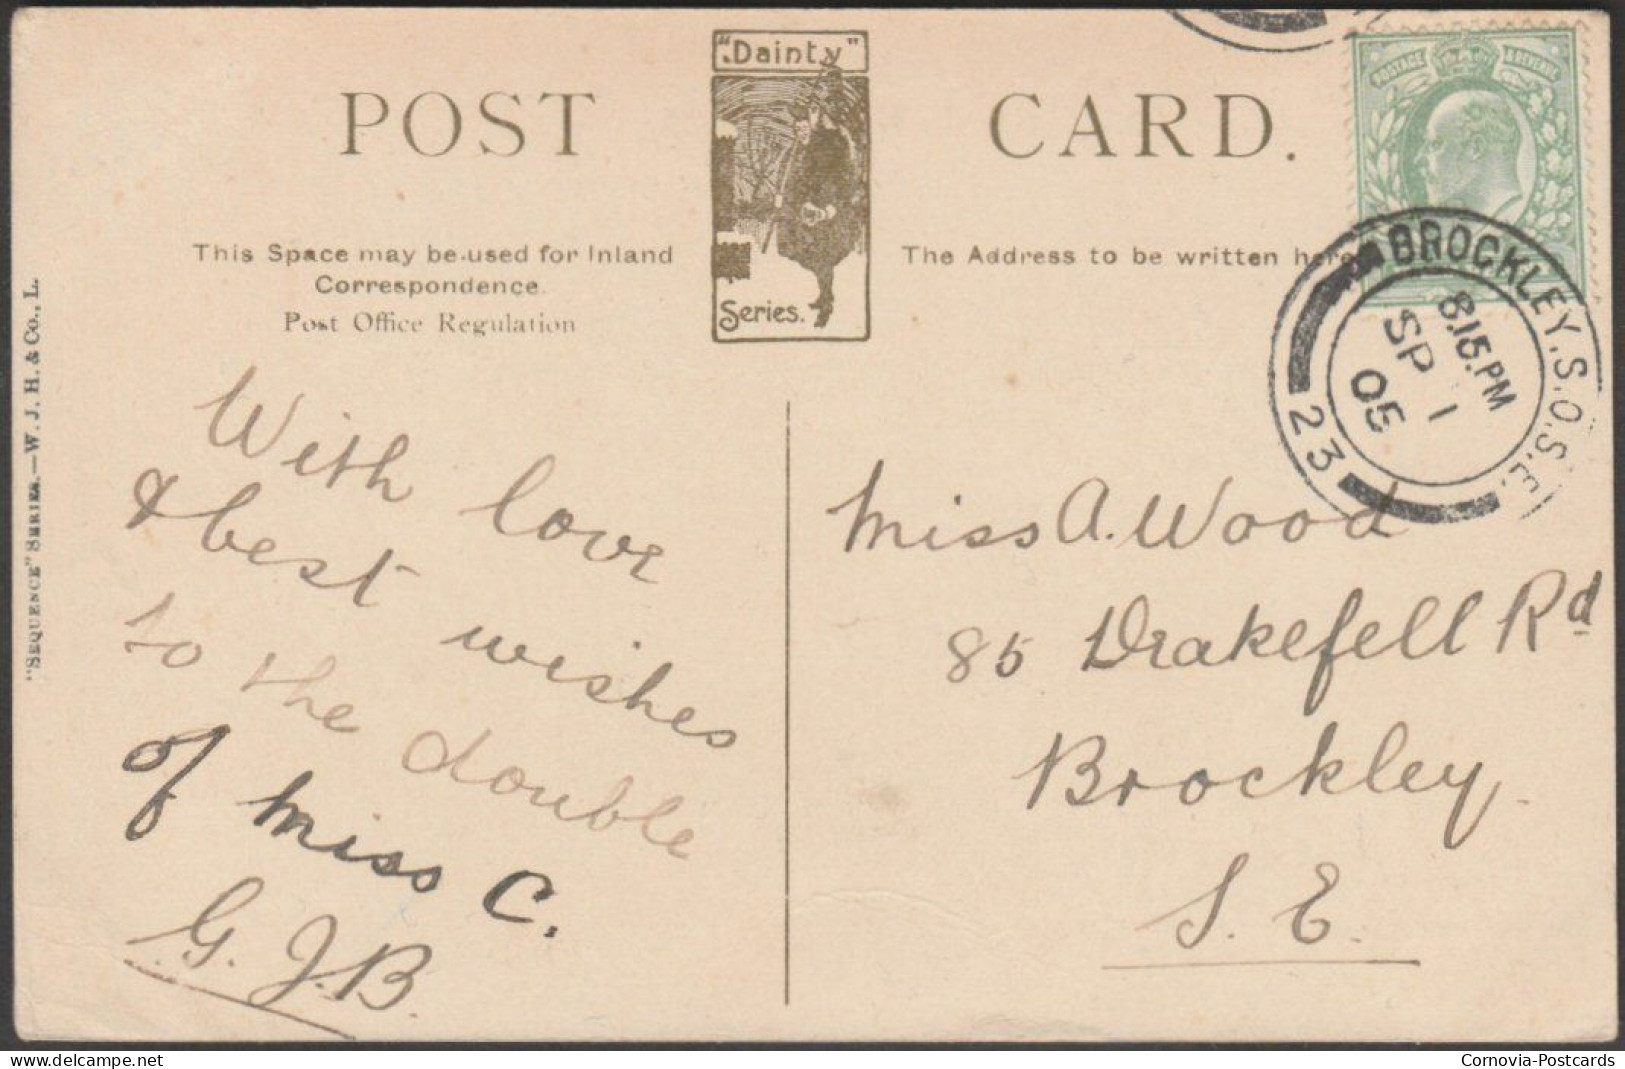 POST CARD.
"Dainty"
Series.
This Space may be used for Inland
Correspondence.
Post Office Regulation
The Address to be written here
"SEQUENCE" SERIES.—W. J. H. & Co., L.
POSTAGE & REVENUE
BROCKLEY.S.O.S.E.
8.15.PM
SP 1
05
23
With love
& best wishes
to the double
of Miss C.
G. J.B.
Miss A. Wood
85 Drakefell Rd
Brockley.
S. E.
delcampe.net
Cornovia-Postcards